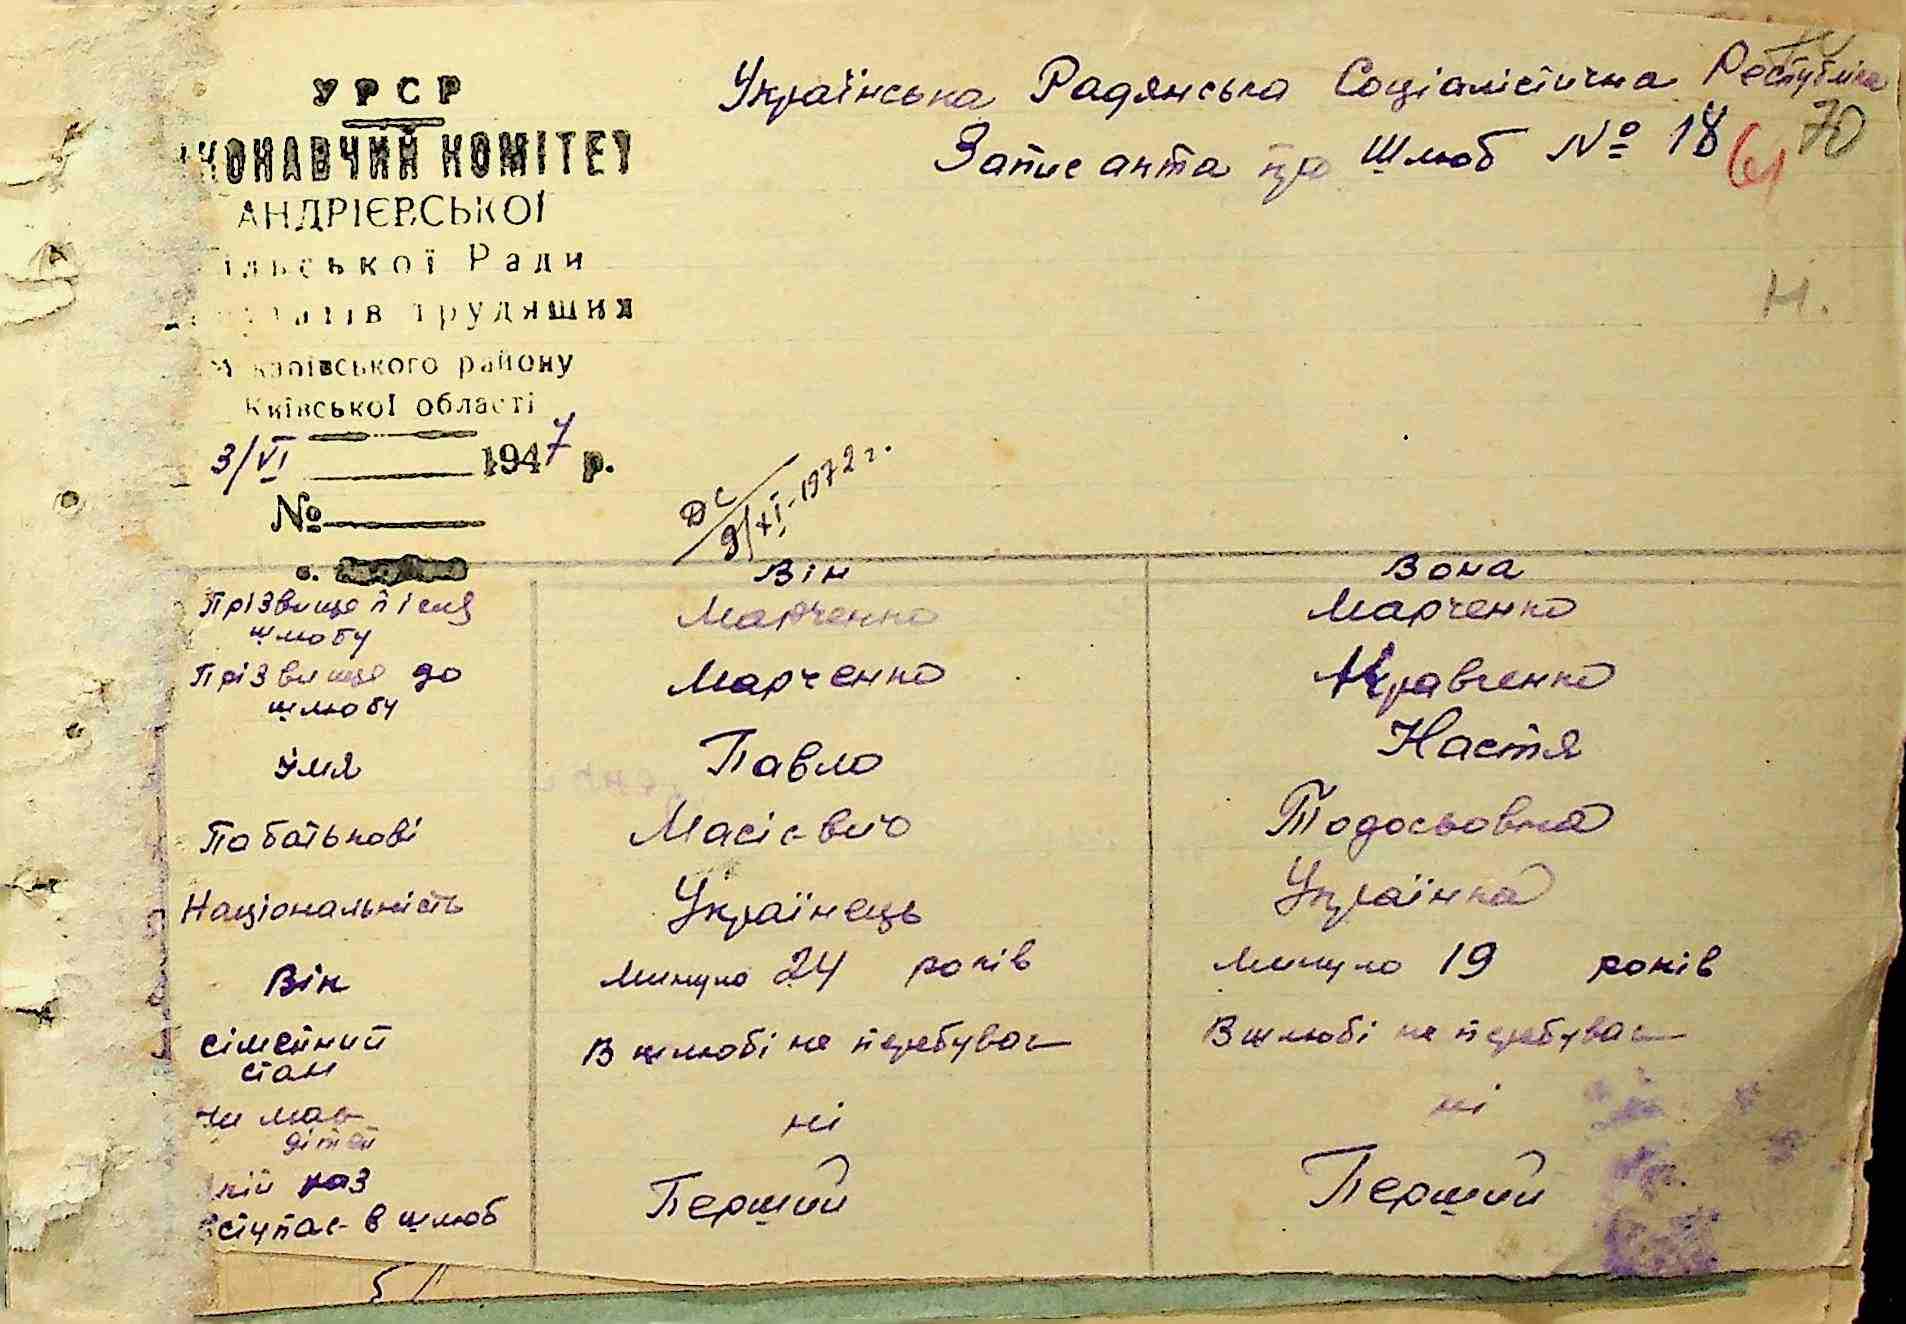 УРСР
КОНАВЧИЙ КОМІТЕТ
АНДРІЄВСЬКОЇ
ільської Ради
трудящих
Київської області
3/VI 1947 р.
№
с.
Українська Радянська Соціалістична Республіка
Запис акта про Шлюб № 18
61
70
Н.
ДС
9/XI-1972 г.
Він Вона
Прізвище після шлюбу Марченко Марченко
Прізвище до шлюбу Марченко Кравченко
Імя Павло Настя
По батькові Масієвич Тодосьовна
Національність Українець Українка
Вік Минуло 24 років Минуло 19 років
Сімейний стан В шлюбі не перебуває В шлюбі не перебуває
Чи має дітей ні ні
раз вступає в шлюб Перший Перший